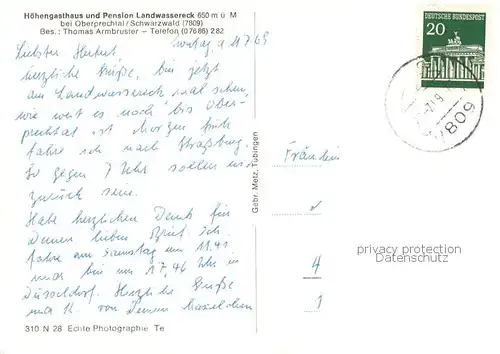 Höhengasthaus und Pension Landwassereck 650 m ü M
bei Oberprechtal / Schwarzwald (7809)
Bes.: Thomas Armbruster – Telefon (07686) 282
Sonntag
Liebster Herbert
herzliche Grüße, bin jetzt
am Landwassereck mal sehen,
wie weit es noch bis Ober-
prechtal ist. Morgen früh
fahre ich nach Straßburg.
So gegen 7 Uhr sollen wir
zurück sein.
Habe herzlichen Dank für
Deinen lieben Brief. Ich
fahre am Samstag um 11.41
und bin um 17,46 Uhr in
Düsseldorf. Herzliche Grüße
und von Deinem
310 N 28 Echte Photographie Te
Gebr. Metz, Tübingen
DEUTSCHE BUNDESPOST
20
7809
Fräulein
4
1
privacy protection
Datenschutz